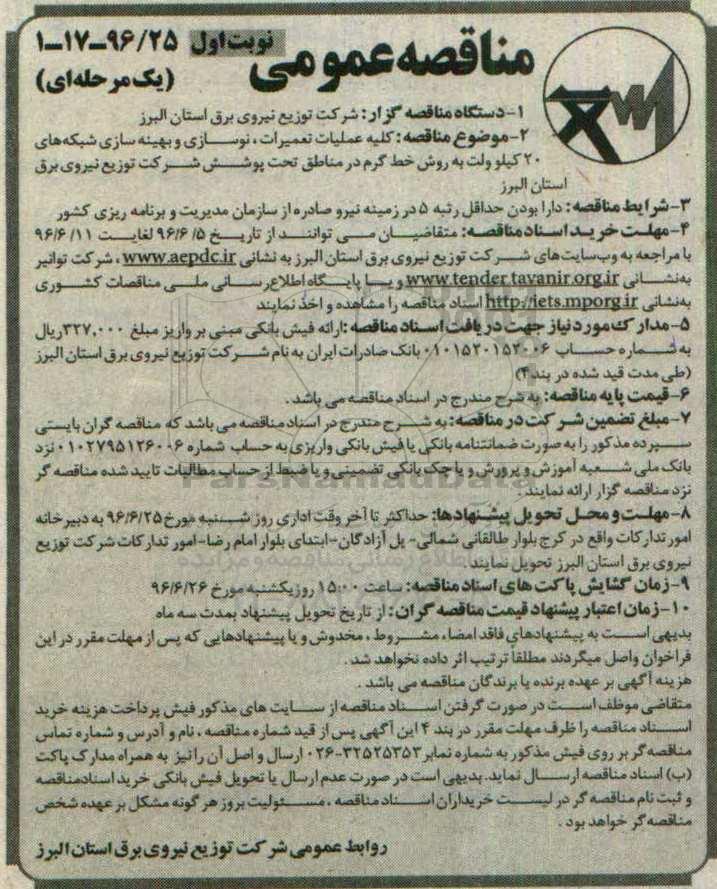 مناقصه عمومی نوبت اول ۹۶/۲۵-۱۷-۱
(یک مرحله‌ای)
۱-دستگاه مناقصه گزار: شرکت توزیع نیروی برق استان البرز
۲-موضوع مناقصه: کلیه عملیات تعمیرات، نوسازی و بهینه سازی شبکه‌های
۲۰ کیلو ولت به روش خط گرم در مناطق تحت پوشش شرکت توزیع نیروی برق
استان البرز
۳-شرایط مناقصه: دارا بودن حداقل رتبه ۵ در زمینه نیرو صادره از سازمان مدیریت و برنامه ریزی کشور
۴-مهلت خرید اسناد مناقصه: متقاضیان می توانند از تاریخ ۹۶/۶/۵ لغایت ۹۶/۶/۱۱
با مراجعه به وب‌سایت‌های شرکت توزیع نیروی برق استان البرز به نشانی www.aepdc.ir، شرکت توانیر
به‌نشانی www.tender.tavanir.org.ir و یا پایگاه اطلاع‌رسانی ملی مناقصات کشوری
به‌نشانی http://iets.mporg.ir اسناد مناقصه را مشاهده و اخذ نمایند
۵-مدارک مورد نیاز جهت دریافت اسناد مناقصه: ارائه فیش بانکی مبنی بر واریز مبلغ ۳۲۷,۰۰۰ ریال
به شماره حساب ۰۱۰۱۵۲۰۱۵۲۰۰۶ بانک صادرات ایران به نام شرکت توزیع نیروی برق استان البرز
(طی مدت قید شده در بند ۴)
۶-قیمت پایه مناقصه: به شرح مندرج در اسناد مناقصه می باشد.
۷-مبلغ تضمین شرکت در مناقصه: به شرح مندرج در اسناد مناقصه می باشد که مناقصه گران بایستی
سپرده مذکور را به صورت ضمانتنامه بانکی یا فیش بانکی واریزی به حساب شماره ۰۱۰۲۷۹۵۱۲۶۰۰۶ نزد
بانک ملی شعبه آموزش و پرورش و یا چک بانکی تضمینی و یا ضبط از حساب مطالبات تایید شده مناقصه گر
نزد مناقصه گزار ارائه نمایند.
۸-مهلت و محل تحویل پیشنهادها: حداکثر تا آخر وقت اداری روز شنبه مورخ ۹۶/۶/۲۵ به دبیرخانه
امور تدارکات واقع در کرج بلوار طالقانی شمالی- پل آزادگان- ابتدای بلوار امام رضا- امور تدارکات شرکت توزیع
نیروی برق استان البرز تحویل نمایند.
۹-زمان گشایش پاکت های اسناد مناقصه: ساعت ۱۵:۰۰ روز یکشنبه مورخ ۹۶/۶/۲۶
۱۰-زمان اعتبار پیشنهاد قیمت مناقصه گران: از تاریخ تحویل پیشنهاد بمدت سه ماه
بدیهی است به پیشنهادهای فاقد امضا، مشروط، مخدوش و یا پیشنهادهایی که پس از مهلت مقرر در این
فراخوان واصل میگردند مطلقاً ترتیب اثر داده نخواهد شد.
هزینه آگهی بر عهده برنده یا برندگان مناقصه می باشد.
متقاضی موظف است در صورت گرفتن اسناد مناقصه از سایت های مذکور فیش پرداخت هزینه خرید
اسناد مناقصه را ظرف مهلت مقرر در بند ۴ این آگهی پس از قید شماره مناقصه، نام و آدرس و شماره تماس
مناقصه گر بر روی فیش مذکور به شماره نمابر ۳۲۵۲۵۳۵۳-۰۲۶ ارسال و اصل آن را نیز به همراه مدارک پاکت
(ب) اسناد مناقصه ارسال نماید. بدیهی است در صورت عدم ارسال یا تحویل فیش بانکی خرید اسنادمناقصه
و ثبت نام مناقصه گر در لیست خریداران اسناد مناقصه، مسئولیت بروز هر گونه مشکل بر عهده شخص
مناقصه گر خواهد بود.
روابط عمومی شرکت توزیع نیروی برق استان البرز
ParsNamadData